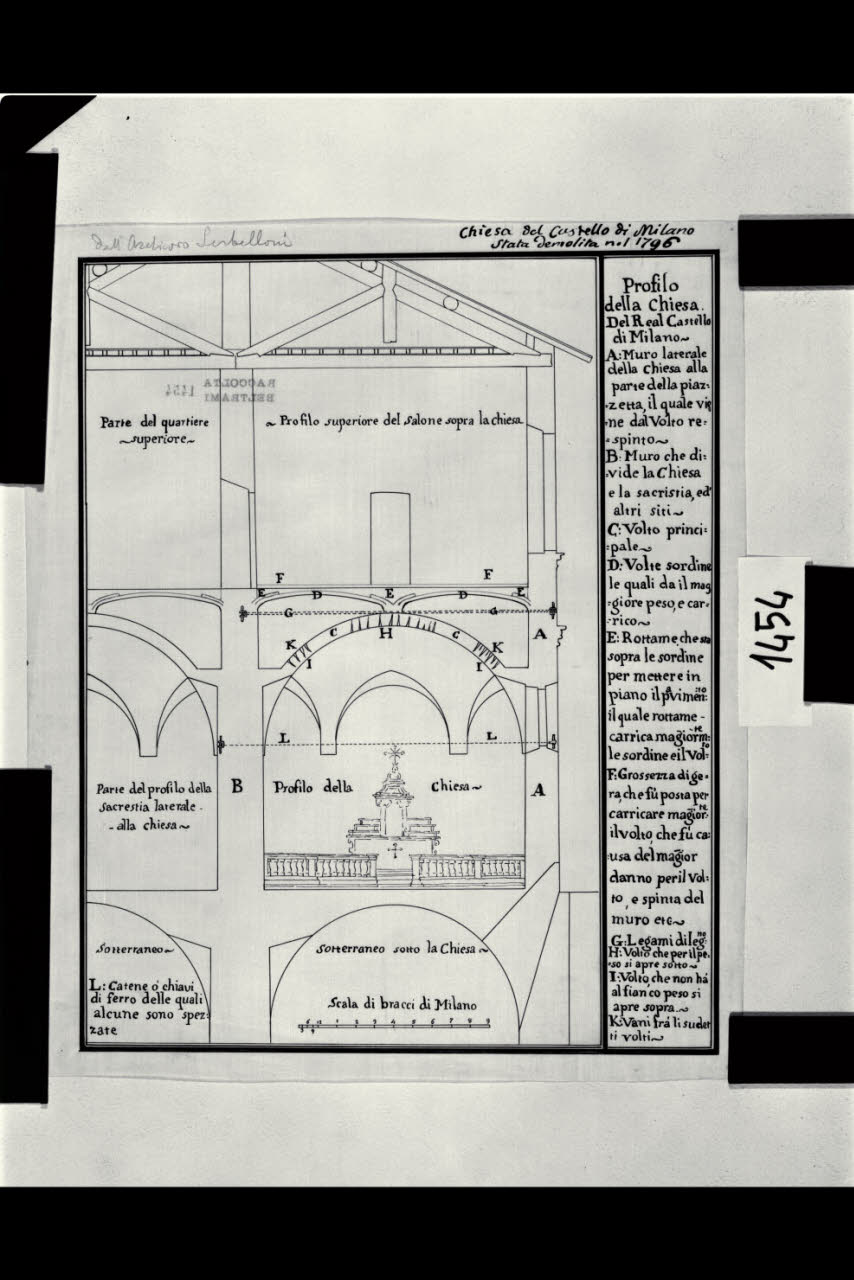 Dall'Archivio Serbelloni
Chiesa del Castello di Milano
Stata demolita nel 1796
RACCOLTA
BELTRAMI
1454
Parte del quartiere
~superiore~
~ Profilo superiore del salone sopra la chiesa
F
F
E
D
E
D
E
G
G
K
C
H
C
K
A
I
I
L
L
Parte del profilo della
sacrestia laterale -
- alla chiesa~
B
Profilo della Chiesa~
A
Sotterraneo~
Sotterraneo sotto la Chiesa~
L: Catene ó chiavi
di ferro delle quali
alcune sono spez:
zate
Scala di bracci di Milano
1 2 3 4 5 6 7 8 9
Profilo
della Chiesa.
Del Real Castello
di Milano~
A: Muro laterale
della Chiesa alla
parte della piaz:
:zetta, il quale vie
:ne dal Volto re:
:spinto~
B: Muro che di:
:vide la Chiesa
e la sacristia, ed
altri siti~
C: Volto princi:
:pale~
D: Volte sordine
le quali da il mag
:giore peso, e car:
:rico~
E: Rottame, che sta
sopra le sordine
per mettere in
piano il pavimēn:to
il quale rottame -
carrica magiorm:te
le sordine e il Vol:to
F: Grossezza di ge:
ra, che fú posta per
carricare magior:te
il volto, che fú ca:
usa del magior
danno per il Vol:
to, e spinta del
muro etc~
G: Legami di leg:no
H: Volto che per il pe:
so si apre sotto~
I: Volto, che non há
al fianco peso si
apre sopra~
K: Vani frá li sudet
ti volti~
1454